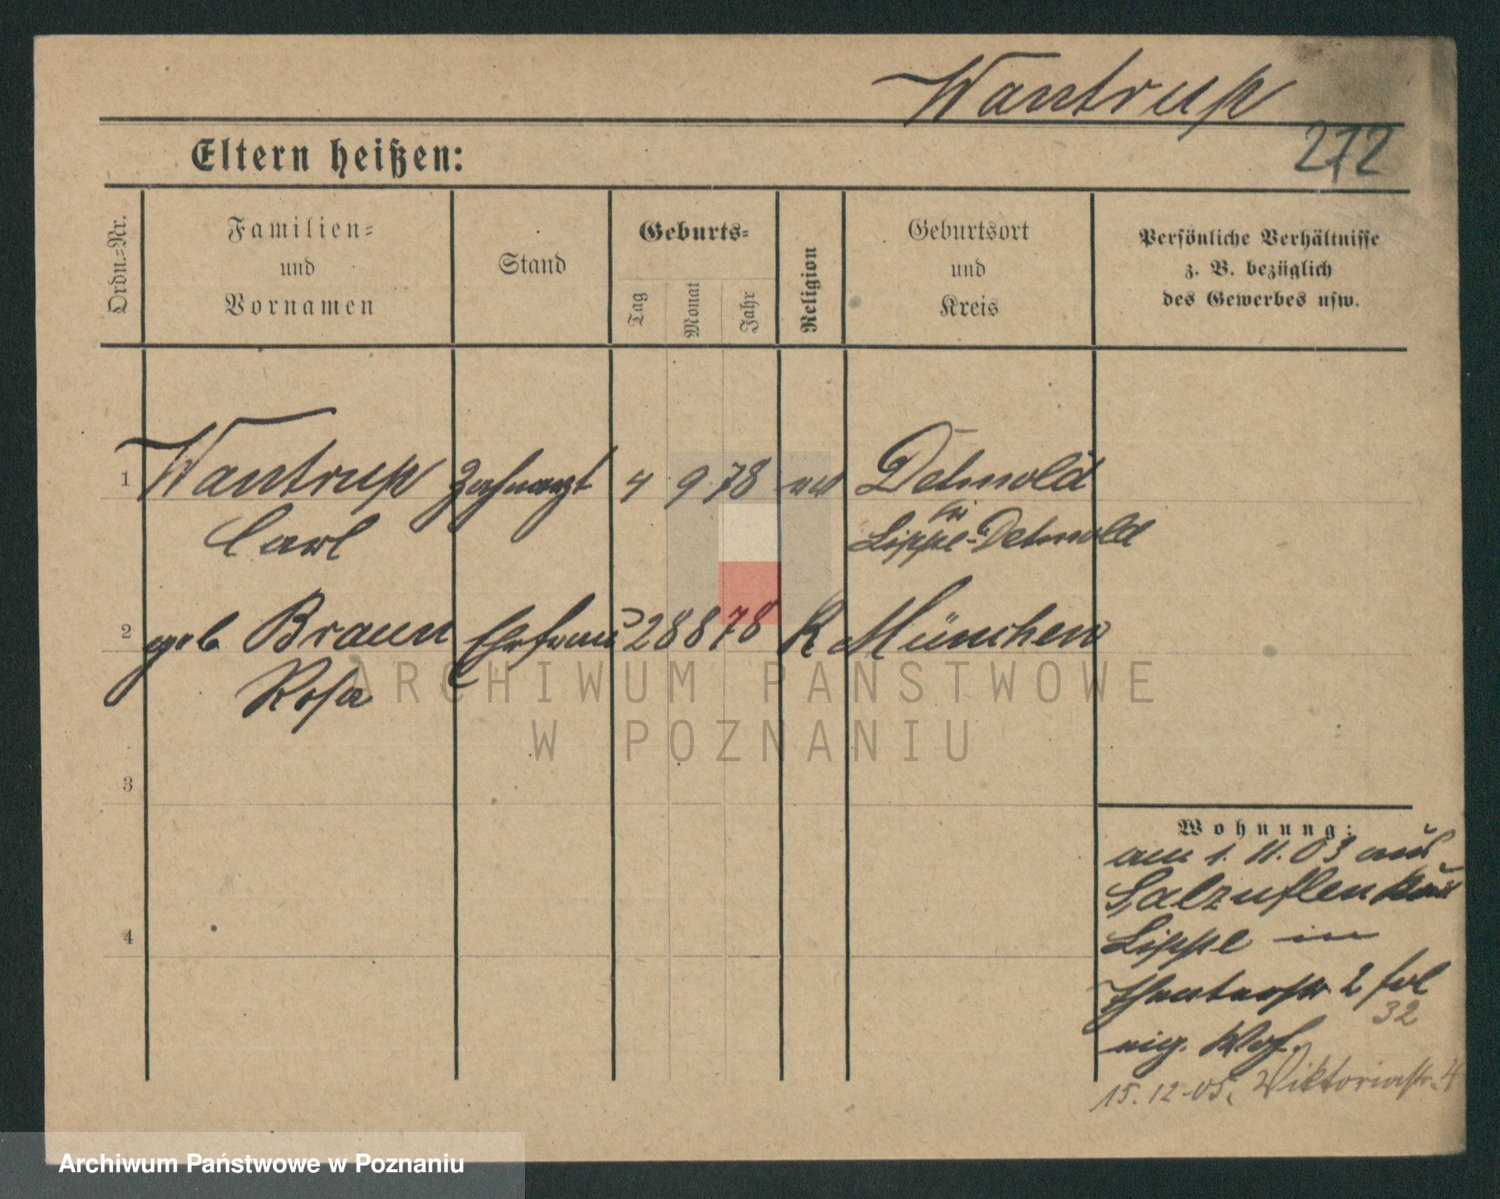 Wantrup
272
Eltern heißen:
Ordn.-Nr.
Familien-
und
Vornamen
Stand
Geburts-
Tag
Monat
Jahr
Religion
Geburtsort
und
Kreis
Persönliche Verhältnisse
z. B. bezüglich
des Gewerbes usw.
1 Wantrup Zahnarzt 4 9 78 Detmold
Carl Lippe-Detmold
2 geb Braun Ehefrau 28 8 78 K München
Rosa
ARCHIWUM PAŃSTWOWE
W POZNANIU
3
Wohnung:
am 1. 11. 03 aus
Salzuflen
4
Lippe in
2
32
eig. Whg.
15.12.05. Viktoriastr. 4
Archiwum Państwowe w Poznaniu